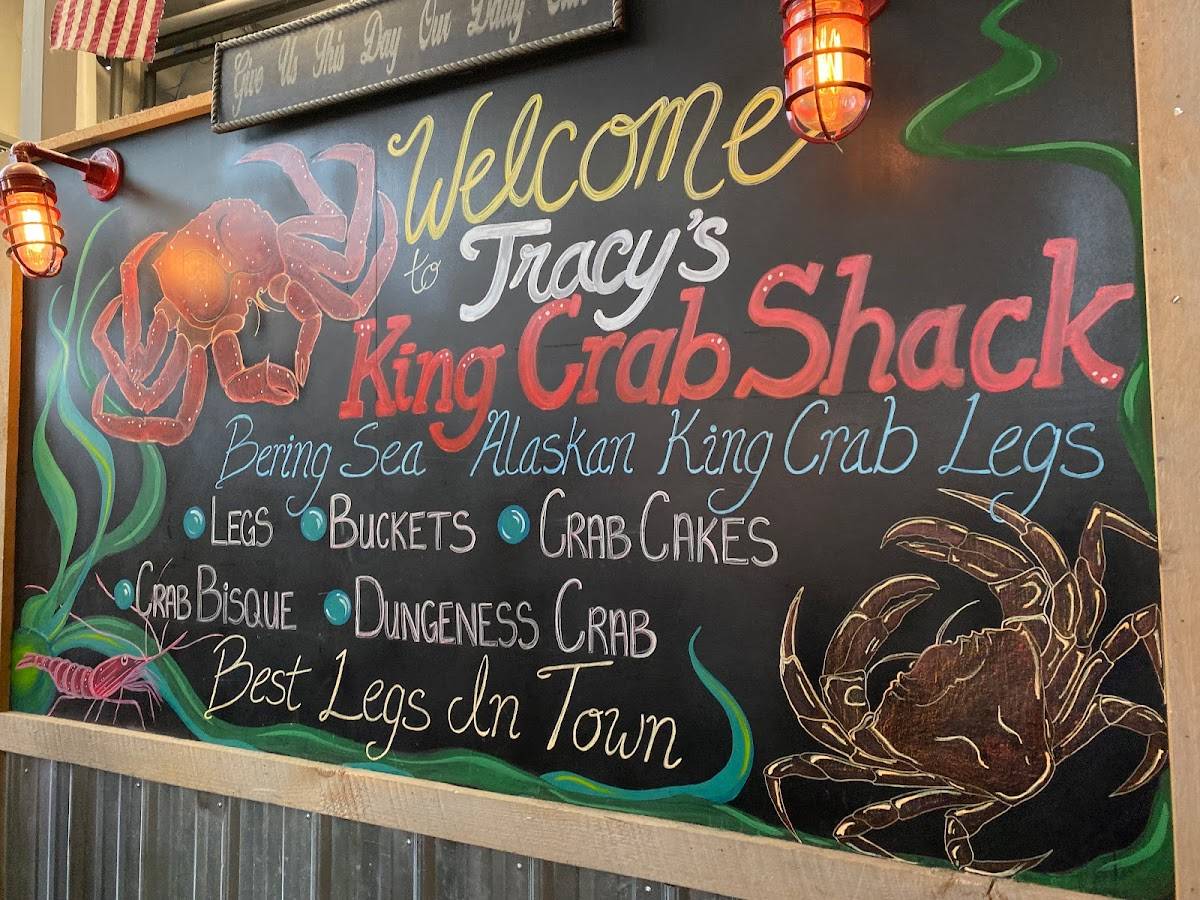 Give Us This Day Our Daily
Welcome
to Tracy's
King Crab Shack
Bering Sea Alaskan King Crab Legs
LEGS BUCKETS CRAB CAKES
CRAB BISQUE DUNGENESS CRAB
Best Legs In Town